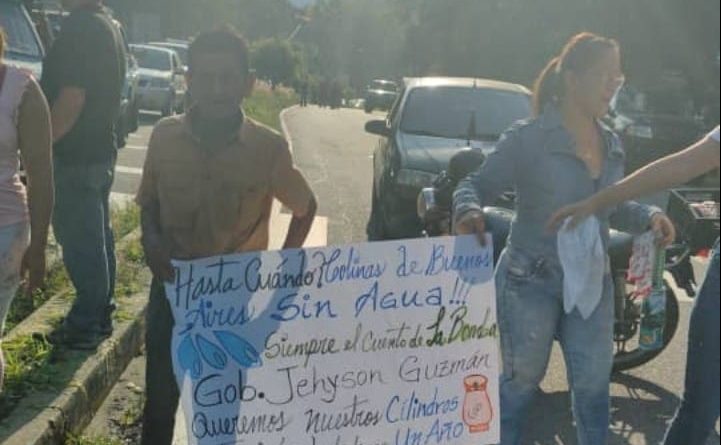 Hasta Cuándo? Colinas de Buenos
Aires Sin Agua!!!
Siempre el Cuento de La Bomba
Gob. Jehyson Guzmán
Queremos Nuestros Cilindros
Un Año